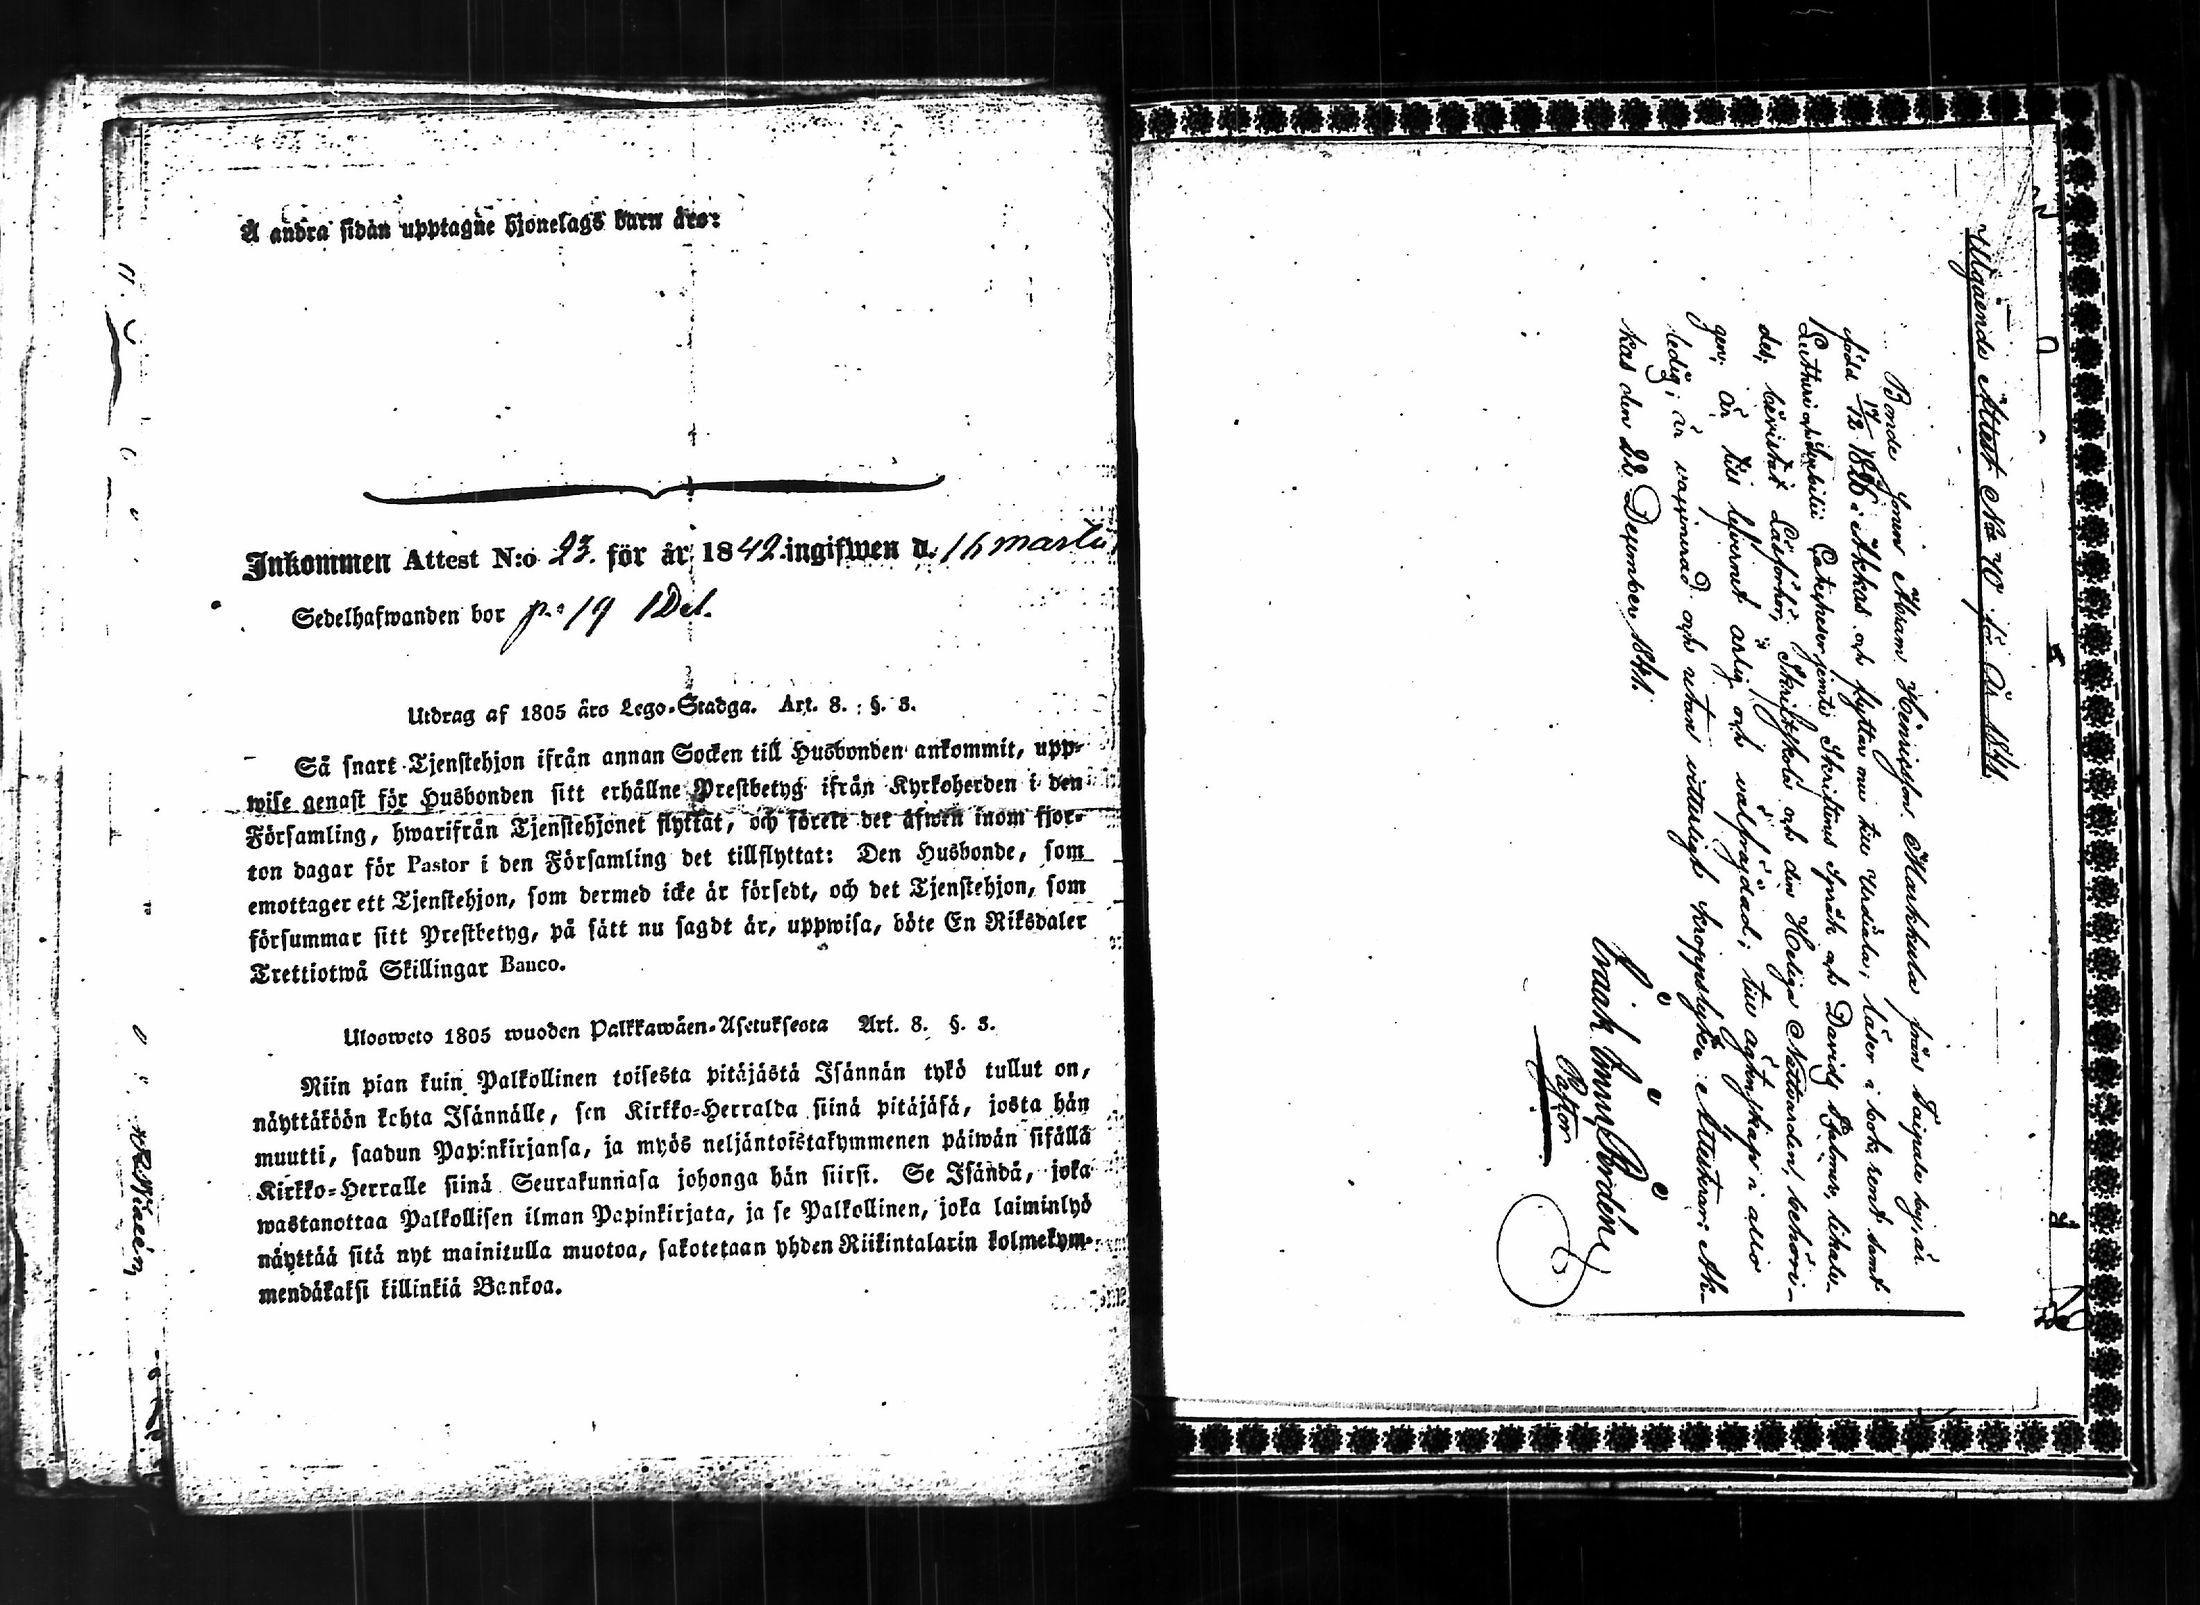 Å andra sidan upptagne hjonelags barn äro:
Inkommen Attest N:o 23. för år 1842. ingifwen d. 16 martii
Sedelhafwanden bor p. 19 1 Del.
Utdrag af 1805 års Lego-Stadga. Art. 8. §. 3.
Så snart Tjenstehjon ifrån annan Socken till Husbonden ankommit, upp-
wise genast för Husbonden sitt erhållne Prestbetyg ifrån Kyrkoherden i den
Församling, hwarifrån Tjenstehjonet flyttat, och förete det äfwen inom fjor-
ton dagar för Pastor i den Församling det tillflyttat: Den Husbonde, som
emottager ett Tjenstehjon, som dermed icke är försedt, och det Tjenstehjon, som
försummar sitt Prestbetyg, på sätt nu sagdt är, uppwisa, böte En Riksdaler
Trettiotwå Skillingar Banco.
Ulosweto 1805 wuoden Palkkawäen-Asetuksesta Art. 8. §. 3.
Niin pian kuin Palkollinen toisesta pitäjästä Isännän tykö tullut on,
näyttäköön kohta Isännälle, sen Kirkko-Herralda siinä pitäjäsä, josta hän
muutti, saadun Papinkirjansa, ja myös neljäntoistakymmenen päiwän sisällä
Kirkko-Herralle siinä Seurakunnasa johonga hän siirsi. Se Isändä, joka
wastanottaa Palkollisen ilman Papinkirjata, ja se Palkollinen, joka laiminlyö
näyttää sitä nyt mainitulla muotoa, sakotetaan yhden Riikintalarin kolmekym-
mendäkaksi killinkiä Bankoa.
Utgående Attest No 40 för År 1841.
Bonde Sonen Abram Henricsson Markkula från Taipale by, är
född 17/12 1826 i Akkas och flyttar nu till Urdiala; läser i bok rent samt
Lutheri Catecheser jemte Skriftens Språk och Davids Psalmer, likale-
des; bevistat Läsförhör, Skriftskola och den Heliga Nattvarden behöri-
gen; är till lefvernet ärlig och välfrägdad; till ägtenskap i allo
ledig; är vaccinerad och utan vitterligt kroppslyte: Attesterar: Ak-
kas den 22 December 1841.
Isaak Imm. Nordlin
Pastor